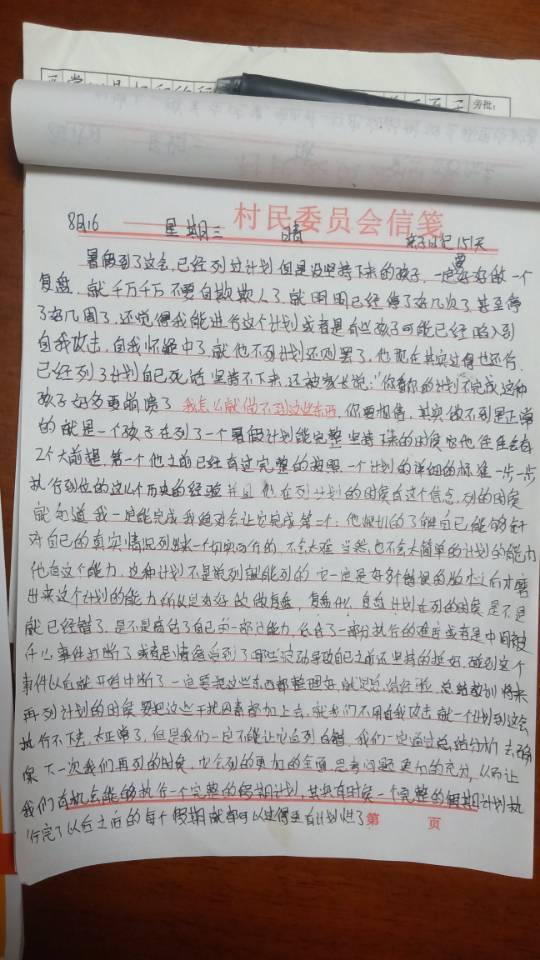 村民委员会信笺
8月16 星期三 晴 亲子日记151天
暑假到了这会,已经列过计划但是没坚持下来的孩子,一定要好好做一个
复盘,就千万千万不要自欺欺人了,就明明已经停了好几次了,甚至停
了好几周了,还觉得我能进行这个计划或者是有些孩子可能已经陷入到
自我攻击,自我怀疑中了,就他不列计划还则罢了,他现在其实过得也还行,
已经列了计划自己死活坚持不下来,还被家长说:"你看你的计划不完成,这种
孩子好多更崩溃了 我怎么就做不到这些东西,你要想得,其实做不到是正常
的就是一个孩子在列了一个暑假计划能完整坚持下来的时候它他往往会有
2个大前提,第一个他之前已经有过完整的按照一个计划的详细的标准一步一步
执行到位的这么个历史的经验并且他在列计划的时候有这个信念,列的时候
就知道我一定能完成我绝对会让它完成第二个:他很机的了解自己能够针
对自己的真实情况列出一个切实可行的,不会太难当然,也不会太简单的计划的能力
他有这个能力,这种计划不是说列就能列的它一定是好多错误的 之后才磨
出来这个计划的能力所以是好好的做复盘,复盘什么,复盘计划在列的时候是不是
就已经错了,是不是高估了自己的一部分能力,低估了一部分执行的难度或者是中间被
什么事件打断了或者是情绪受到了哪些波动导致自己之前还坚持的挺好,碰到这个
事件以后就开始中断了一定要把这些东西都整理好,就说总结经验,总结教训将来
再列计划的时候要把这些干扰因素都加上去,就我们不用自我攻击就一个计划到这会
执行不下来,太正常了,但是我们一定不能让它白列白错,我们一定通过总结分析去确
保下一次我们再列的时候,它会列的更加的全面,思考问题更加的充分,从而让
我们有机会能够执行一个完整的假期计划,其实有时候一个完整的假期计划执
行完了以后之后的每个假期就都可以过得更有计划性了
第 页
旁批: